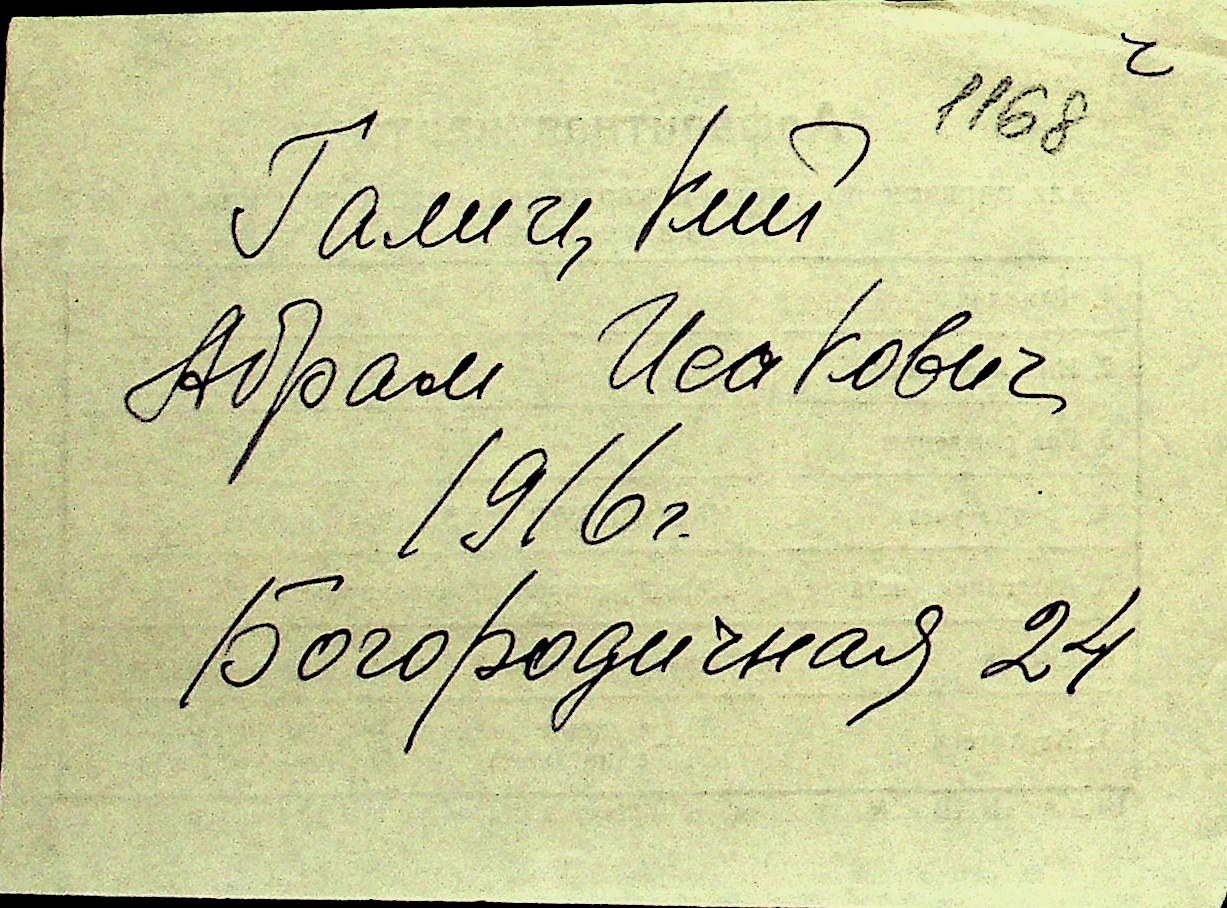 1168
Галицкий
Абрам Исакович
1916 г.
Богородичная 24